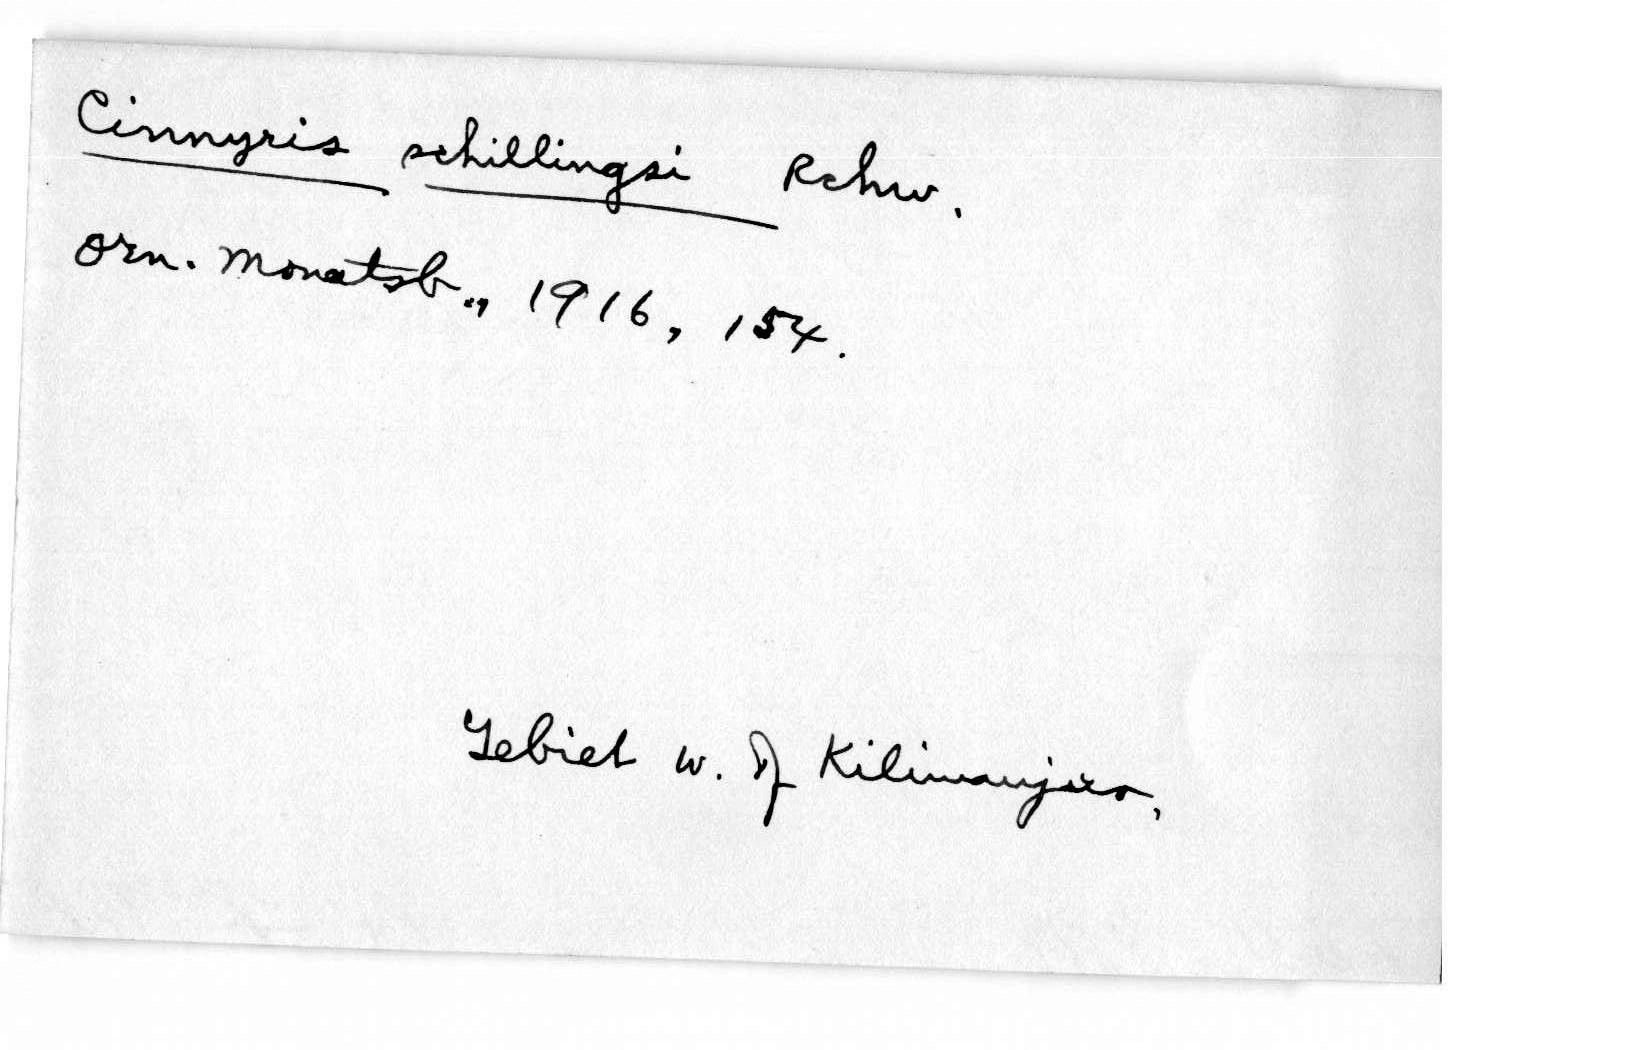 Cinnyris schillingsi Rchw.
Orn. Monatsb., 1916, 154.
Gebiet w. of Kilimanjaro,